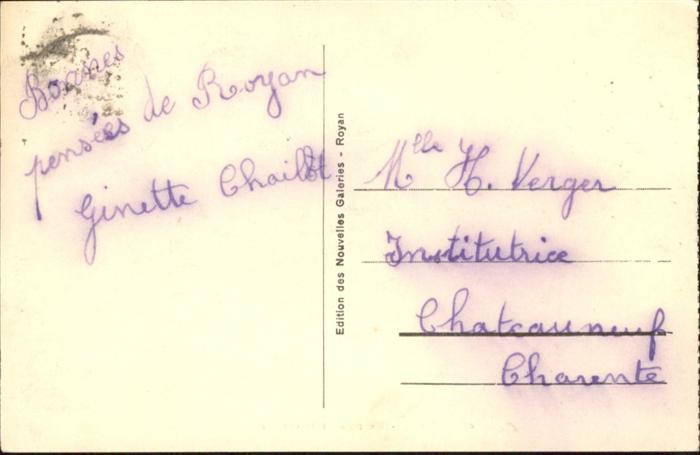 Bonnes
pensées de Royan
Ginette Chaillot
Edition des Nouvelles Galeries - Royan
Mlle H. Verger
Institutrice
Chateauneuf
Charente